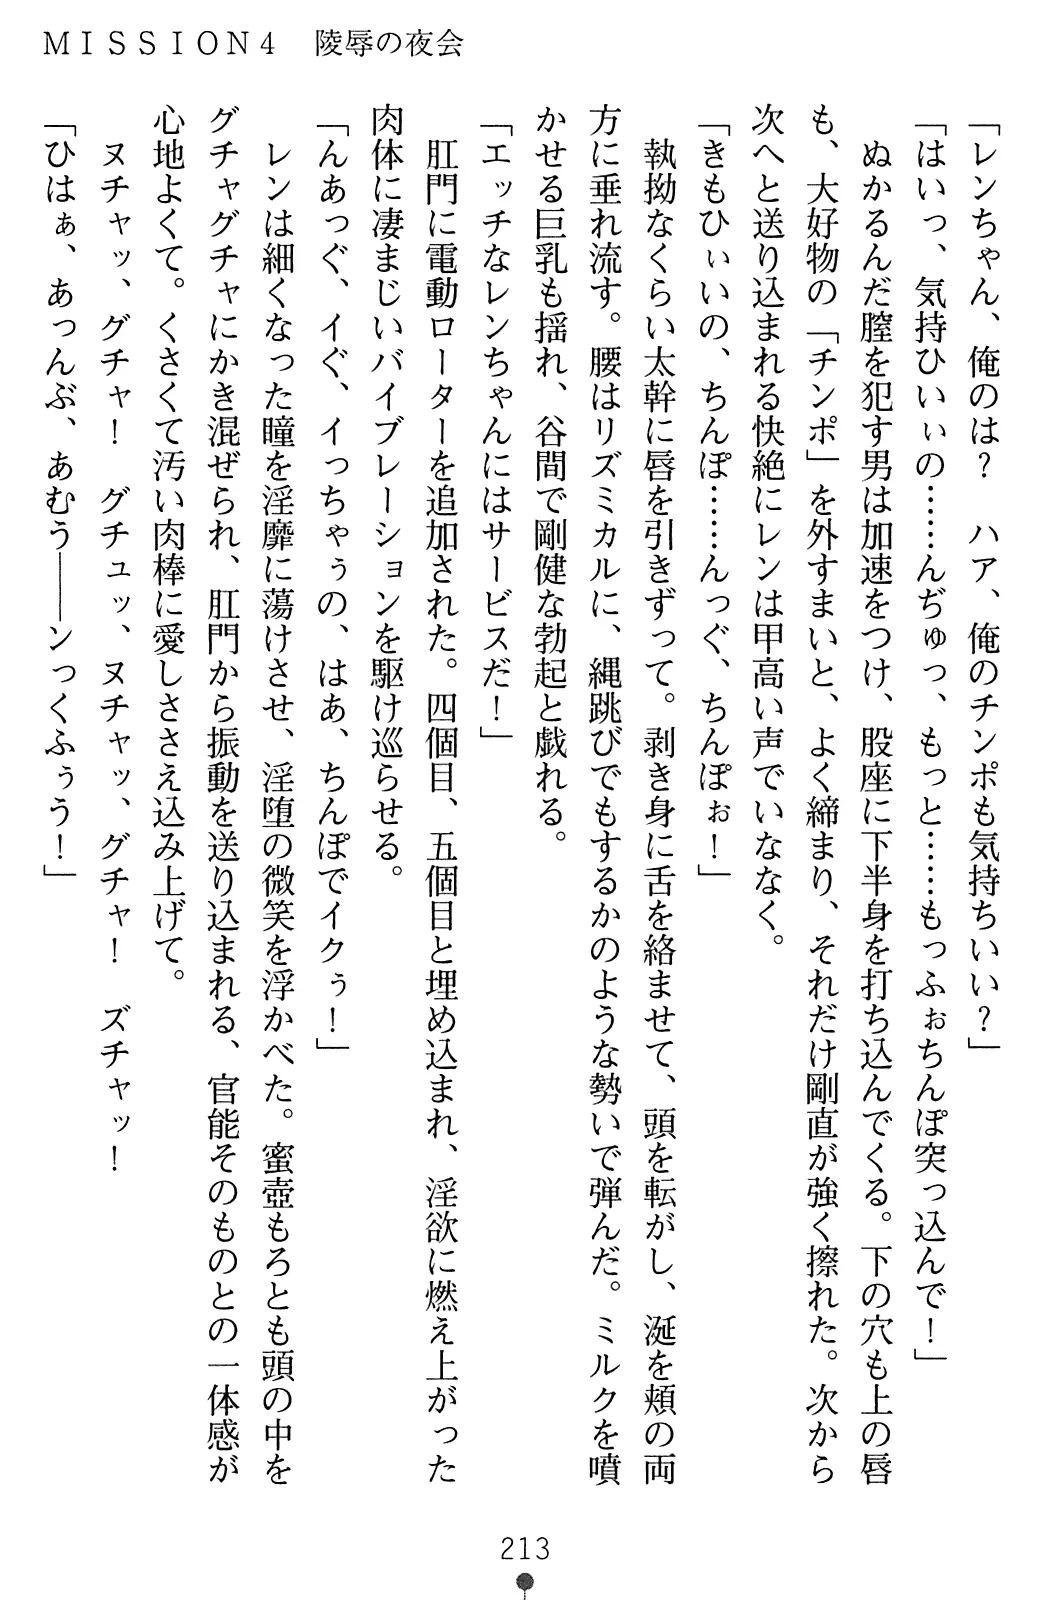 MISSION4　陵辱の夜会
「レンちゃん、俺のは？　ハア、俺のチンポも気持ちいい？」
「はいっ、気持ひいぃの……んぢゅっ、もっと……もっふぉちんぽ突っ込んで！」
　ぬかるんだ膣を犯す男は加速をつけ、股座に下半身を打ち込んでくる。下の穴も上の唇
も、大好物の「チンポ」を外すまいと、よく締まり、それだけ剛直が強く擦れた。次から
次へと送り込まれる快絶にレンは甲高い声でいななく。
「きもひぃいの、ちんぽ……んっぐ、ちんぽぉ！」
　執拗なくらい太幹に唇を引きずって。剥き身に舌を絡ませて、頭を転がし、涎を頬の両
方に垂れ流す。腰はリズミカルに、縄跳びでもするかのような勢いで弾んだ。ミルクを噴
かせる巨乳も揺れ、谷間で剛健な勃起と戯れる。
「エッチなレンちゃんにはサービスだ！」
　肛門に電動ローターを追加された。四個目、五個目と埋め込まれ、淫欲に燃え上がった
肉体に凄まじいバイブレーションを駆け巡らせる。
「んあっぐ、イぐ、イっちゃぅの、はあ、ちんぽでイクぅ！」
　レンは細くなった瞳を淫靡に蕩けさせ、淫堕の微笑を浮かべた。蜜壺もろとも頭の中を
グチャグチャにかき混ぜられ、肛門から振動を送り込まれる、官能そのものとの一体感が
心地よくて。くさくて汚い肉棒に愛しささえ込み上げて。
　ヌチャッ、グチャ！　グチュッ、ヌチャッ、グチャ！　ズチャッ！
「ひはぁ、あっんぶ、あむう――ンっくふぅう！」
213